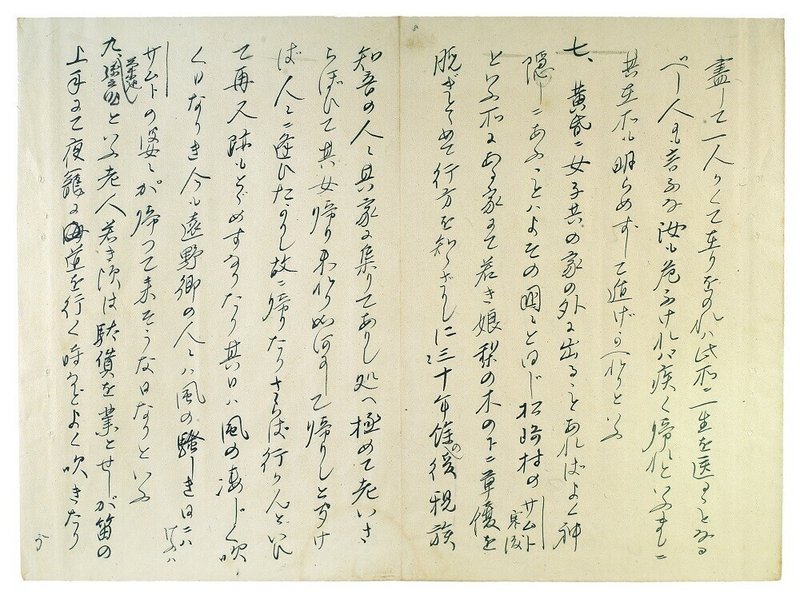 盡して一人かくて在りをのれハ此所ニ一生を送ることなる
べし人にも言ふな汝も危ふけれバ疾く帰れといふまゝニ
其在所も明らめずして逃げかへれりといふ
七、黄昏ニ女子共の家の外に出ることあればよく神
隠しニあふことハよその国々と同じ松崎村のサムト
寒渡
といふ所にある家にて若き娘梨の木の下ニ草履を
脱ぎとめて行方を知らずなりしに三十年餘の後親族
知音の人々其家に集りてありし処へ極めて老いさ
らぼひて其女帰り来れり如何にして帰りしと問へ
ば人々ニ逢ひたかりし故ニ帰りたりさらば行かんといひ
て再又跡もとゞめずなりたり其日ハ風の凄じく吹
く日なりき今も遠野郷の人々ハ風の騒しき日ニハ
けふハ
サムトの婆々が帰つて来そうな日なりといふ
九、菊池といふ老人若き頃は駄賃を業とせしが笛の
上手にて夜籠に海道を行く時などよく吹きたり